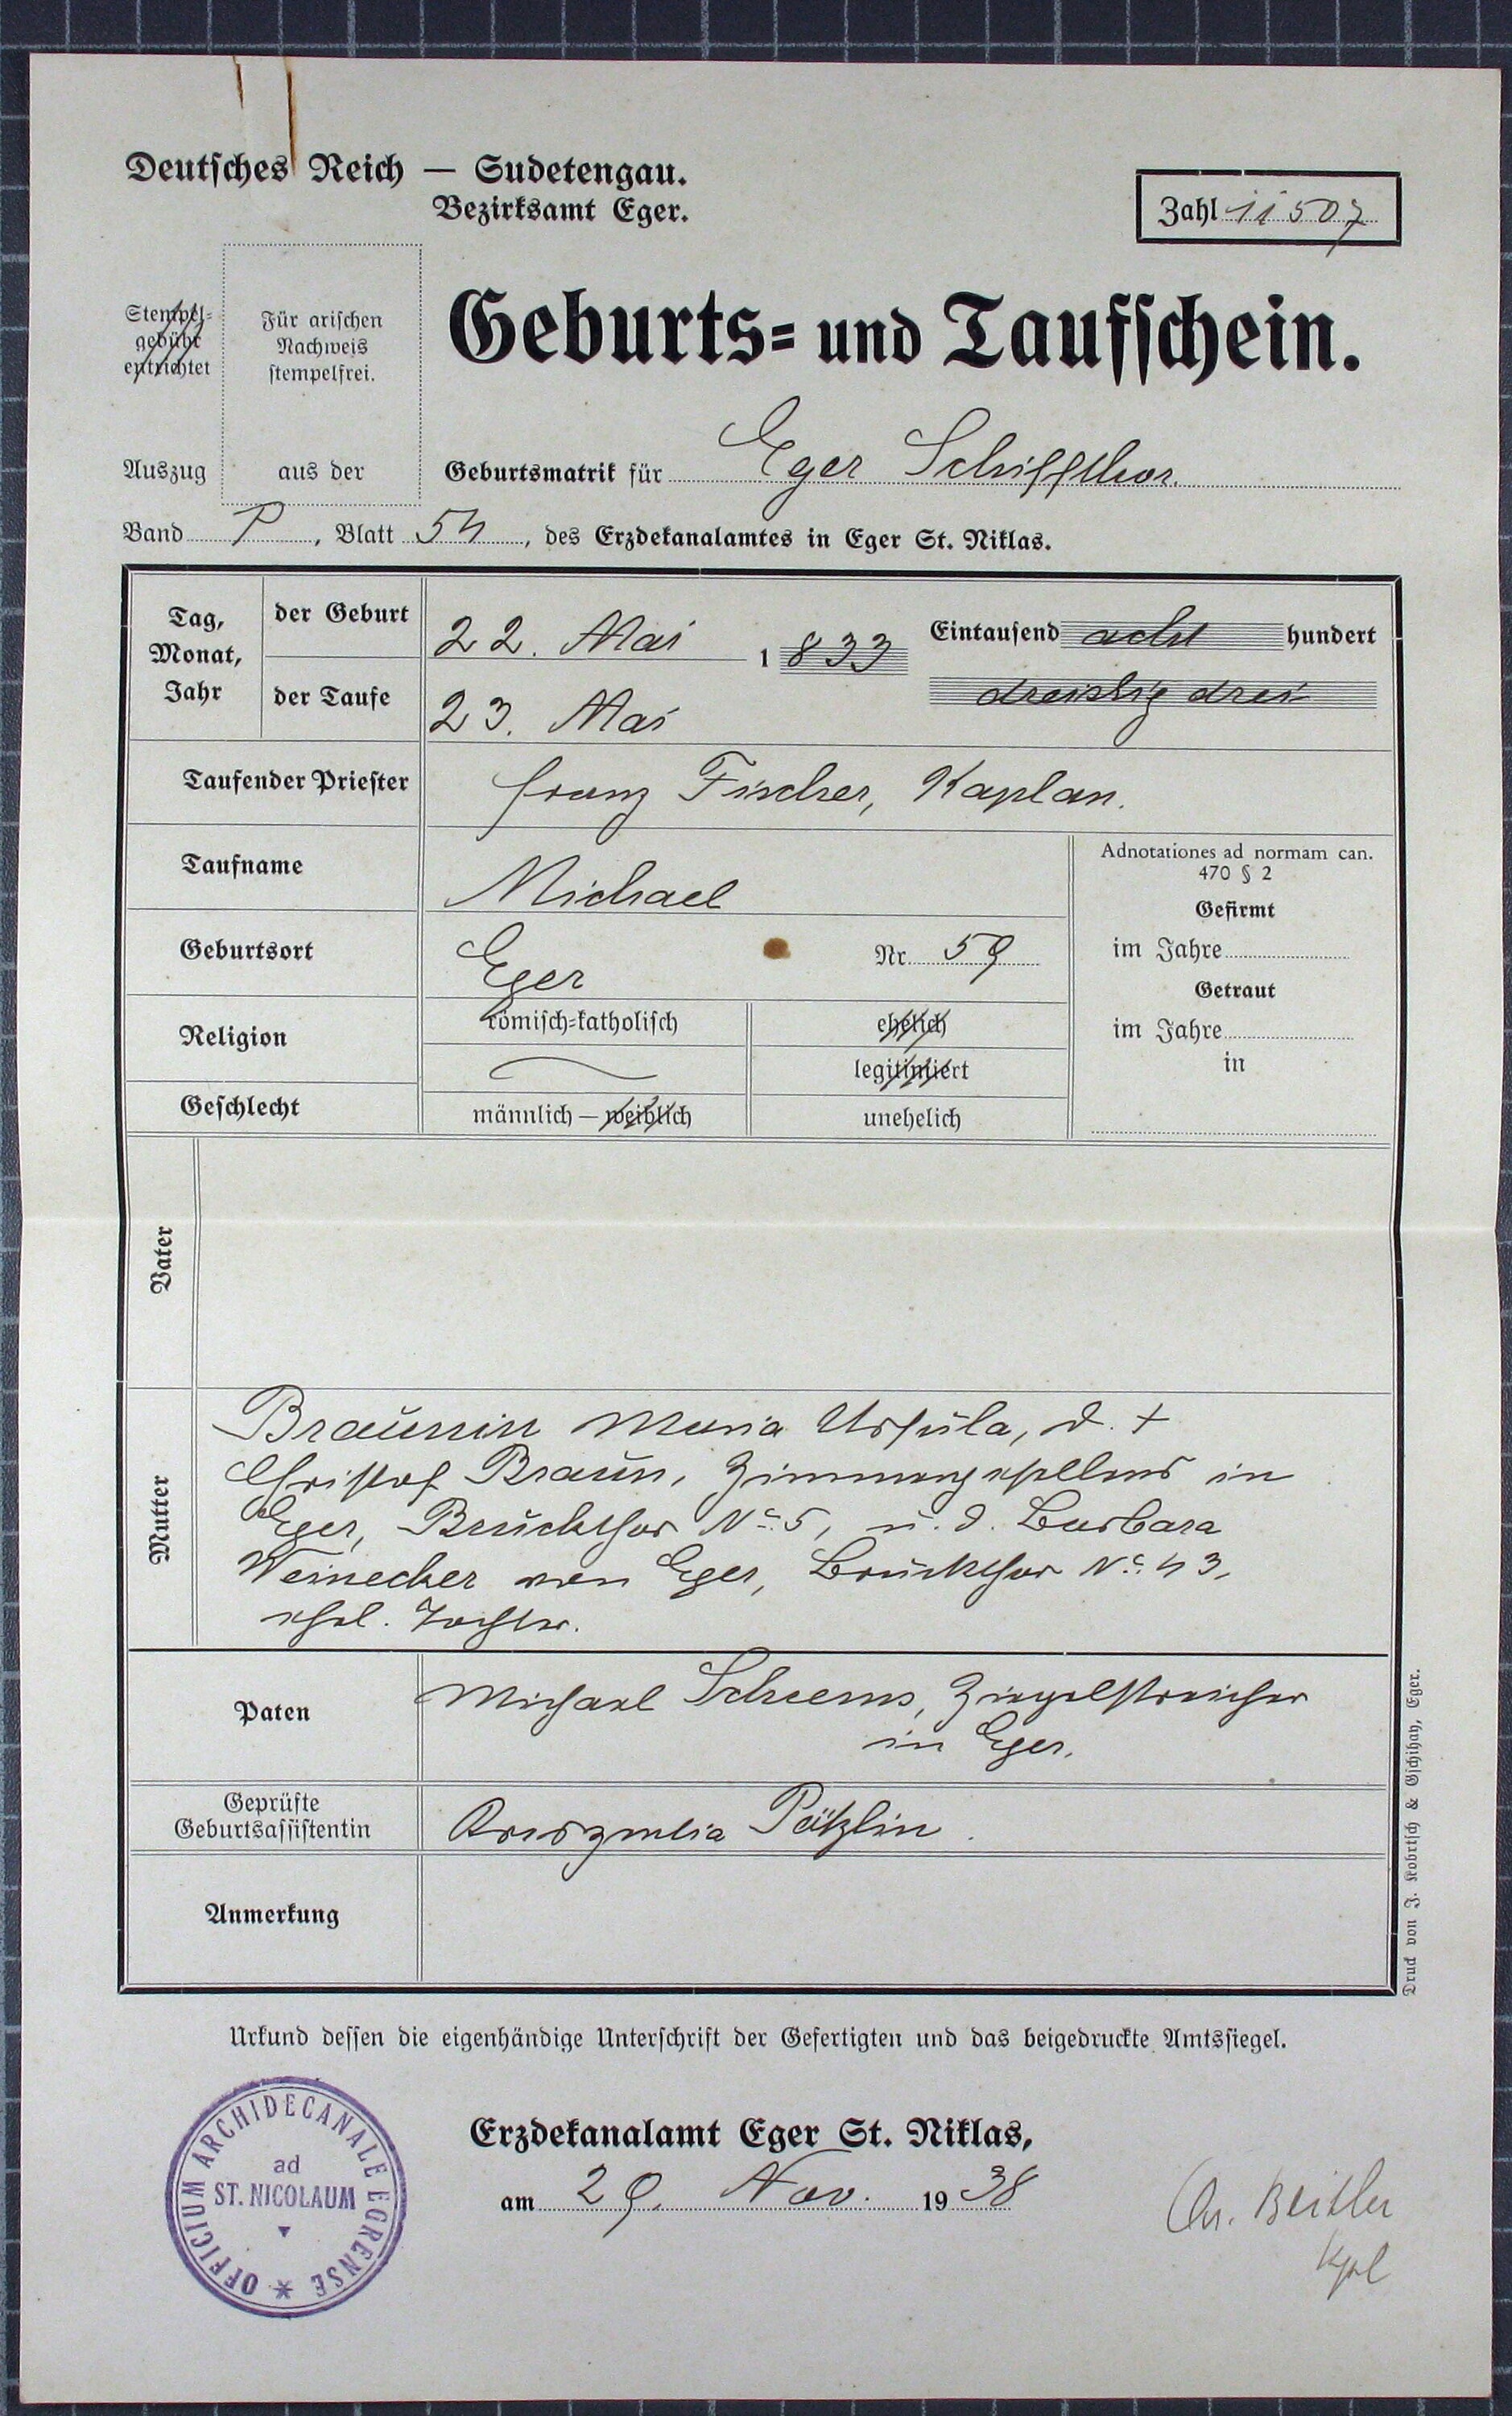 Deutsches Reich — Sudetengau.
Bezirksamt Eger.
Zahl 11507
Stempel-
gebühr
entrichtet
Für arischen
Nachweis
stempelfrei.
Geburts- und Taufschein.
Auszug aus der Geburtsmatrik für Eger Schiffthor.
Band P, Blatt 54, des Erzdekanalamtes in Eger St. Niklas.
Tag,
Monat,
Jahr
der Geburt
22. Mai 1833
Eintausend acht hundert
dreiszig drei
der Taufe
23. Mai
Taufender Priester
Franz Fischer, Kaplan.
Taufname
Michael
Geburtsort
Eger Nr. 59
Religion
römisch-katholisch
ehelich
legitimiert
Geschlecht
männlich — weiblich
unehelich
Adnotationes ad normam can.
470 § 2
Gefirmt
im Jahre
Getraut
im Jahre
in
Vater
Mutter
Braunin Maria Ursula, d. †
Christof Braun, Zimmergesellens in
Eger, Bruckthor No. 5, u. d. Barbara
Weinecker von Eger, Bruckthor No. 43,
ehel. Tochter.
Paten
Michael Ziegelstreicher
in Eger.
Geprüfte
Geburtsassistentin
Pätzlin.
Anmerkung
Druck von J. Kobrtsch & Gschihay, Eger.
Urkund dessen die eigenhändige Unterschrift der Gefertigten und das beigedruckte Amtssiegel.
OFFICIUM ARCHIDECANALE EGRENSE
ad
ST. NICOLAUM
Erzdekanalamt Eger St. Niklas,
am 29. Nov. 1938
Beitler
Kpl